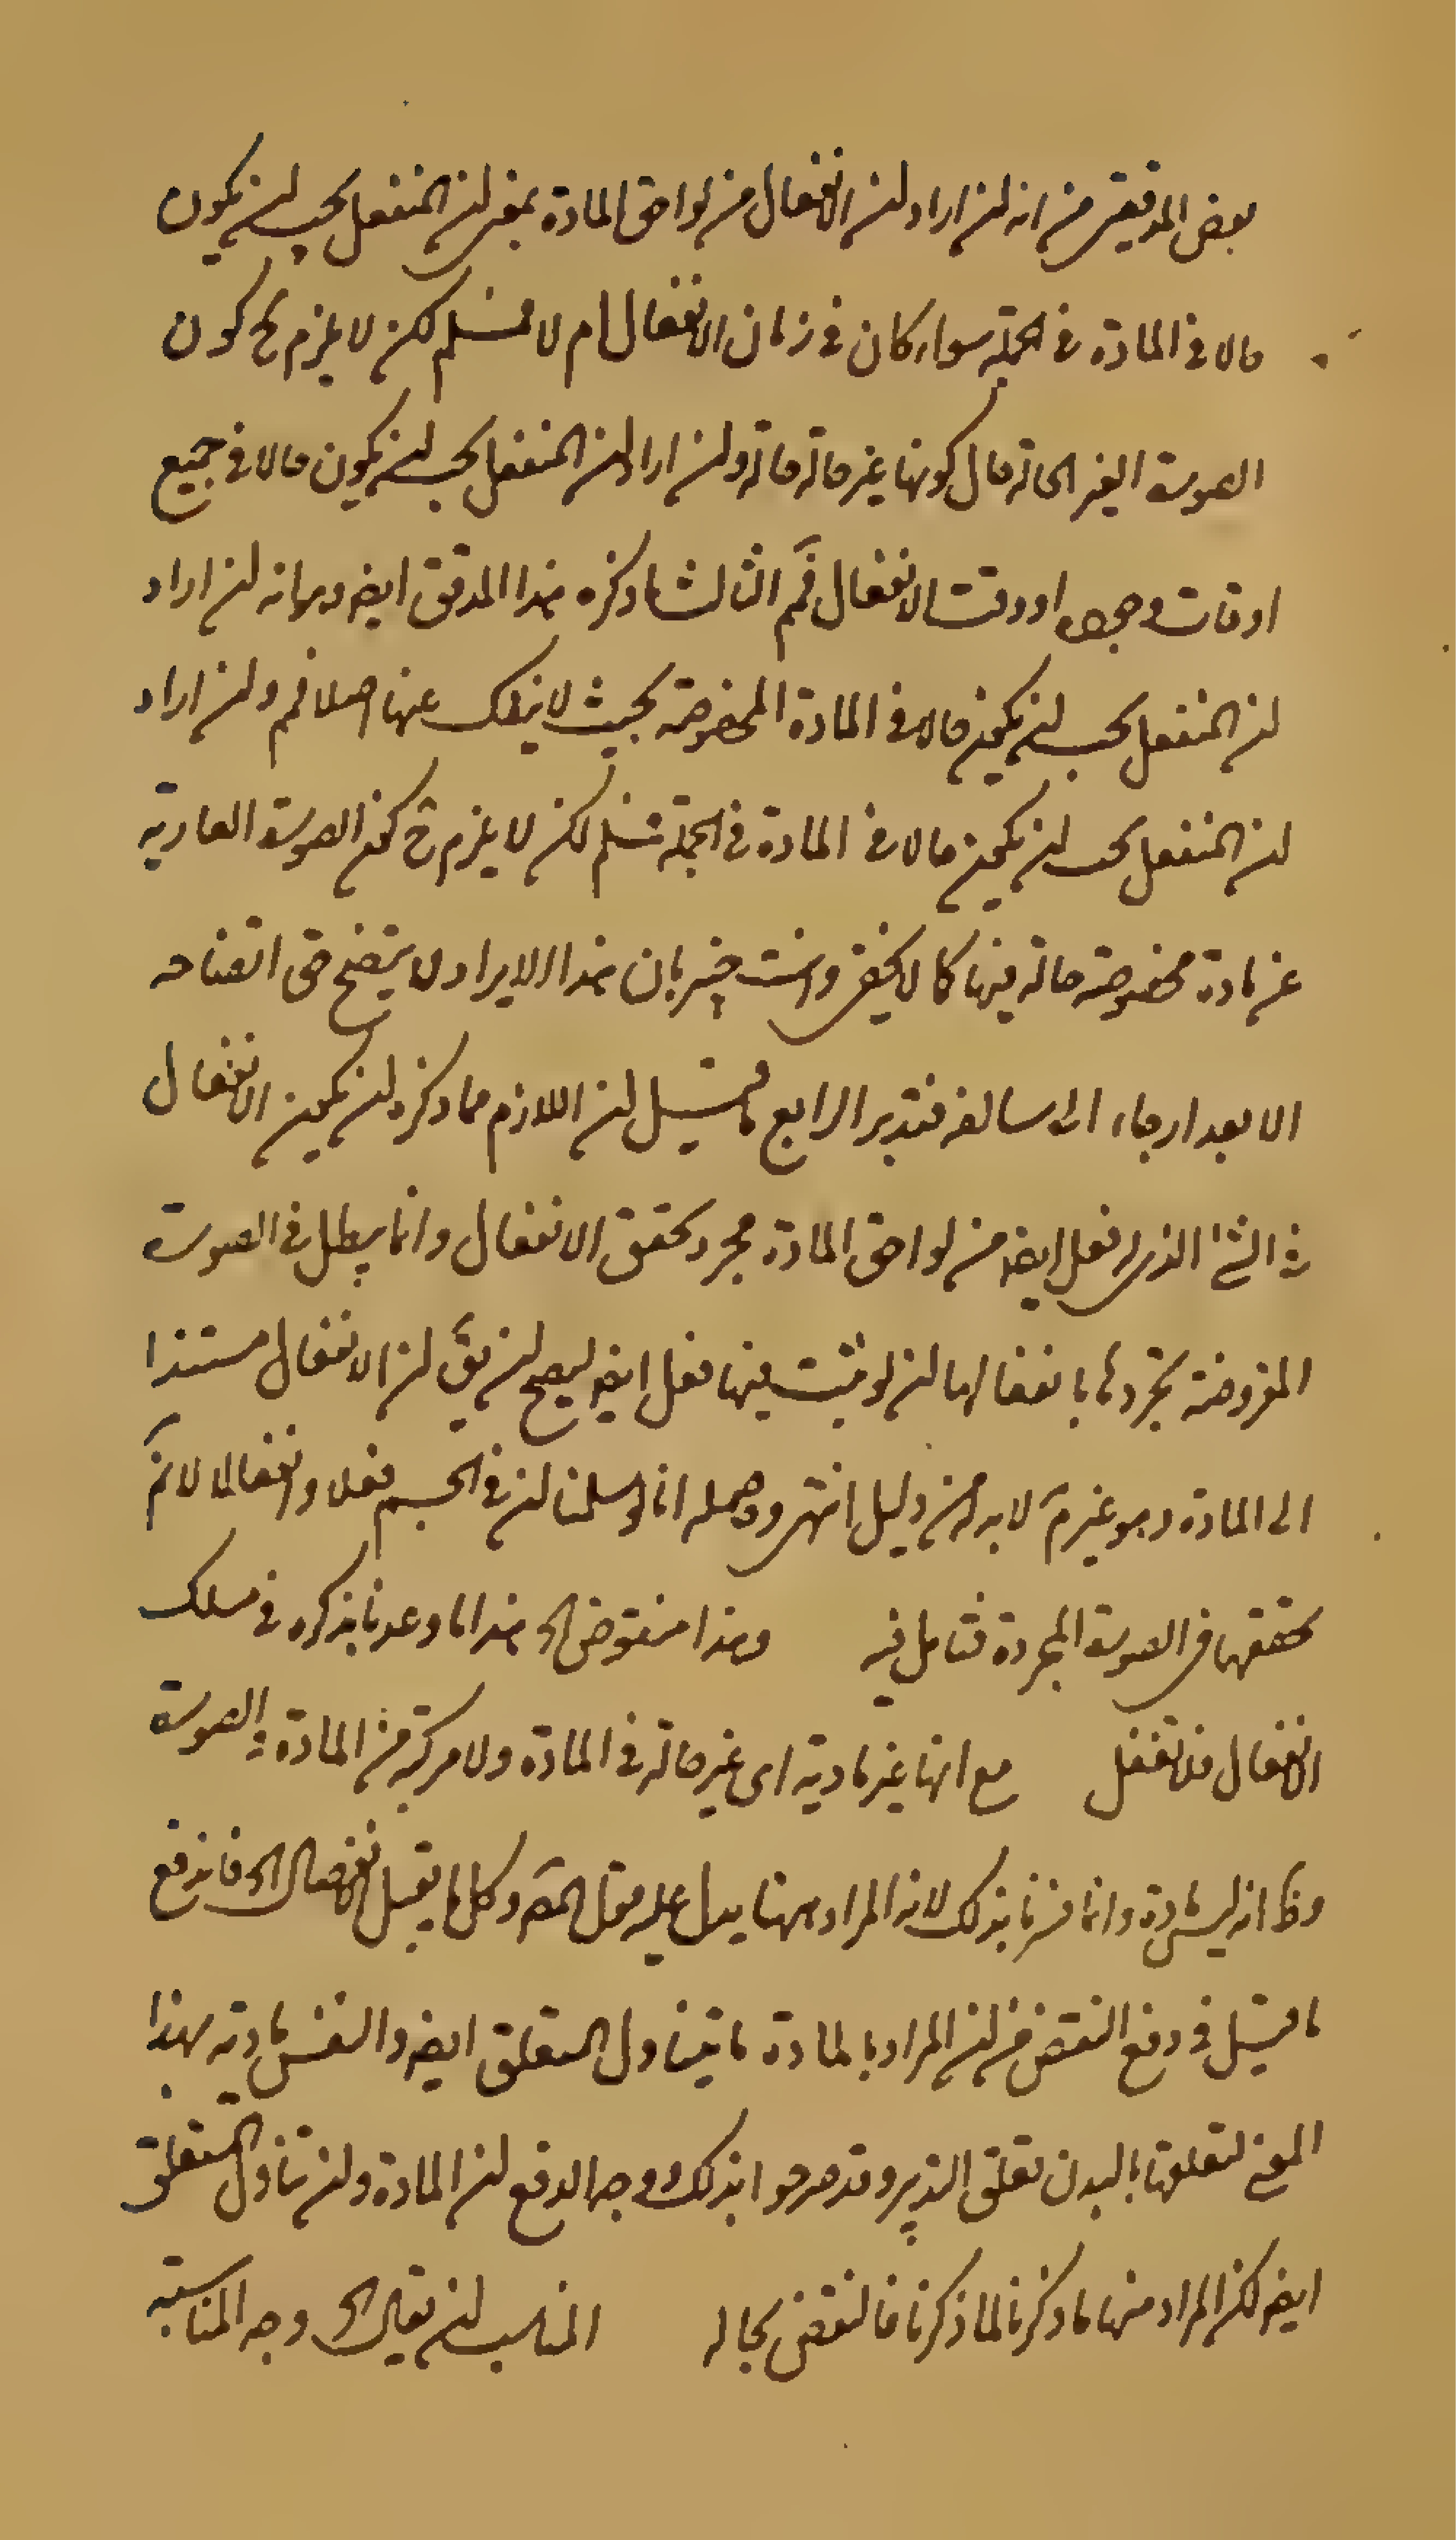 بعض المدققين من انه ان اراد ان الانفعال من لواحق المادة بمعنى ان المنفعل يجب ان يكون
حالا في المادة في الجملة سواء كان في زمان الانفعال ام لا فمسلم لكن لا يلزم ح كون
الصورة الغير الحالة حال كونها غير حالة حالة وان اراد ان المنفعل يجب ان يكون حالا في جميع
اوقات وجوده او وقت الانفعال فمم الثالث ما ذكره هذا المدقق ايضا وهو انه ان اراد
ان المنفعل يجب ان يكون حالا في المادة المخصوصة بحيث لا ينفك عنها اصلا فمم وان اراد
ان المنفعل يجب ان يكون حالا في المادة في الجملة فمسلم لكن لا يلزم ح كون الصورة العارية
عن مادة مخصوصة حالة فيها كما لا يخفى وانت خبير بان هذا الايراد لا يتضح حق اتضاحه
الا بعد ارجاء الى سالفه فتدبر الرابع ما قيل ان اللازم مما ذكره ان يكون الانفعال
في الشئ الذي له فعل ايضا من لواحق المادة مجرد تحقق الانفعال وانما يبطل في الصورة
المفروضة تجردها بانفعالها ان لو ثبت فيها فعل ايضا ليصح ان يق ان الانفعال مستندا
الى المادة وهو غير مم لا بد له من دليل انتهى وحاصله انا لو سلمنا ان في الجسم فعلا وانفعالا لا نم
تحققهما في الصورة المجردة فتامل فيه وهذا منقوض الخ هذا ما وعدنا بذكره في مسلك
الانفعال فلا تغفل مع انها غير مادية اى غير حالة في المادة ولا مركبة من المادة والصورة
وظ انه ليس بمادة وانما فسرنا بذلك لانه المراد ههنا يدل عليه قول المصَ وكل ما يقبل الانفصال الخ فاندفع
ما قيل في دفع النقض من ان المراد بالمادة ما يتناول المتعلق ايضا والنفس مادية بهذا
المعنى لتعلقها بالبدن تعلق التدبير وقد صرحوا بذلك ووجه الدفع ان المادة وان تناول المتعلق
ايضا لكن المراد منها ما ذكرنا لما ذكرنا فالنقض بحاله المناسب ان يقال الخ وجه المناسبة